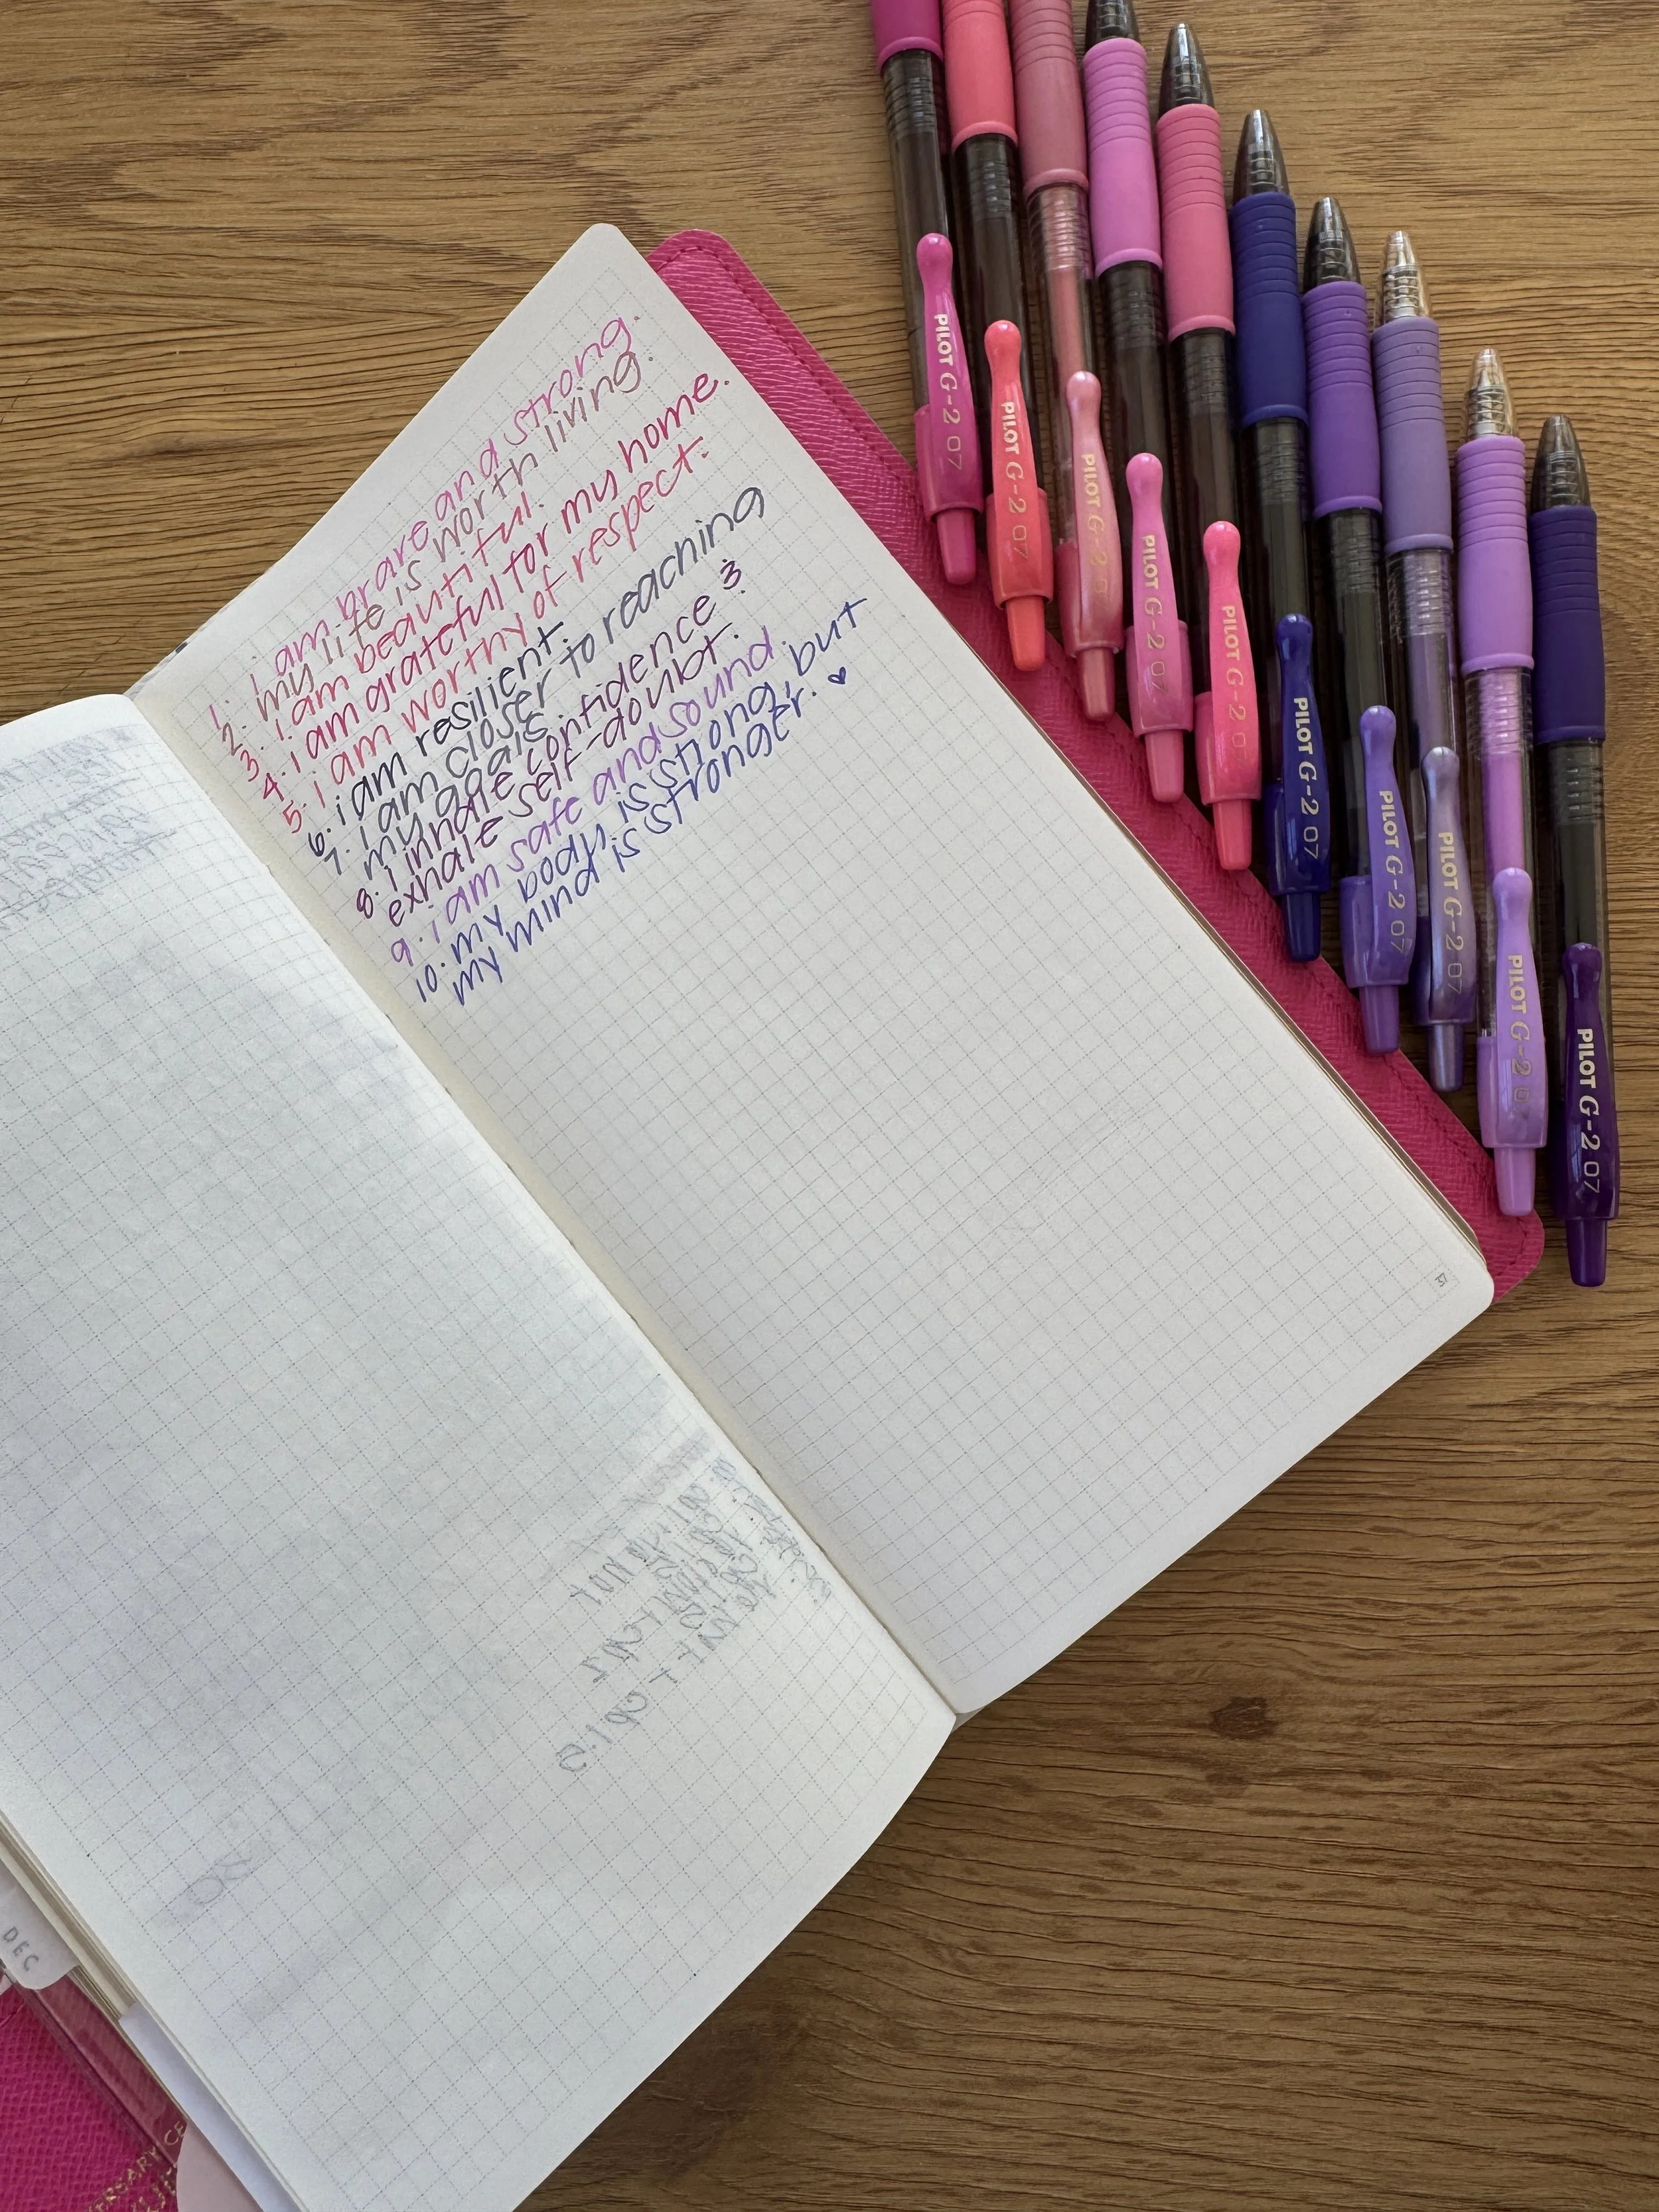 1. I am brave and strong.
2. my life is worth living.
3. I am beautiful.
4. I am grateful for my home.
5. I am worthy of respect.
6. i am resilient.
7. I am closer to reaching
my goals.
8. I inhale confidence &
exhale self-doubt.
9. i am safe and sound.
10. my body is strong, but
my mind is stronger.
PILOT G-2 07
PILOT G-2 07
PILOT G-2 07
PILOT G-2 07
PILOT G-2 07
PILOT G-2 07
PILOT G-2 07
PILOT G-2 07
PILOT G-2 07
PILOT G-2 07
DEC